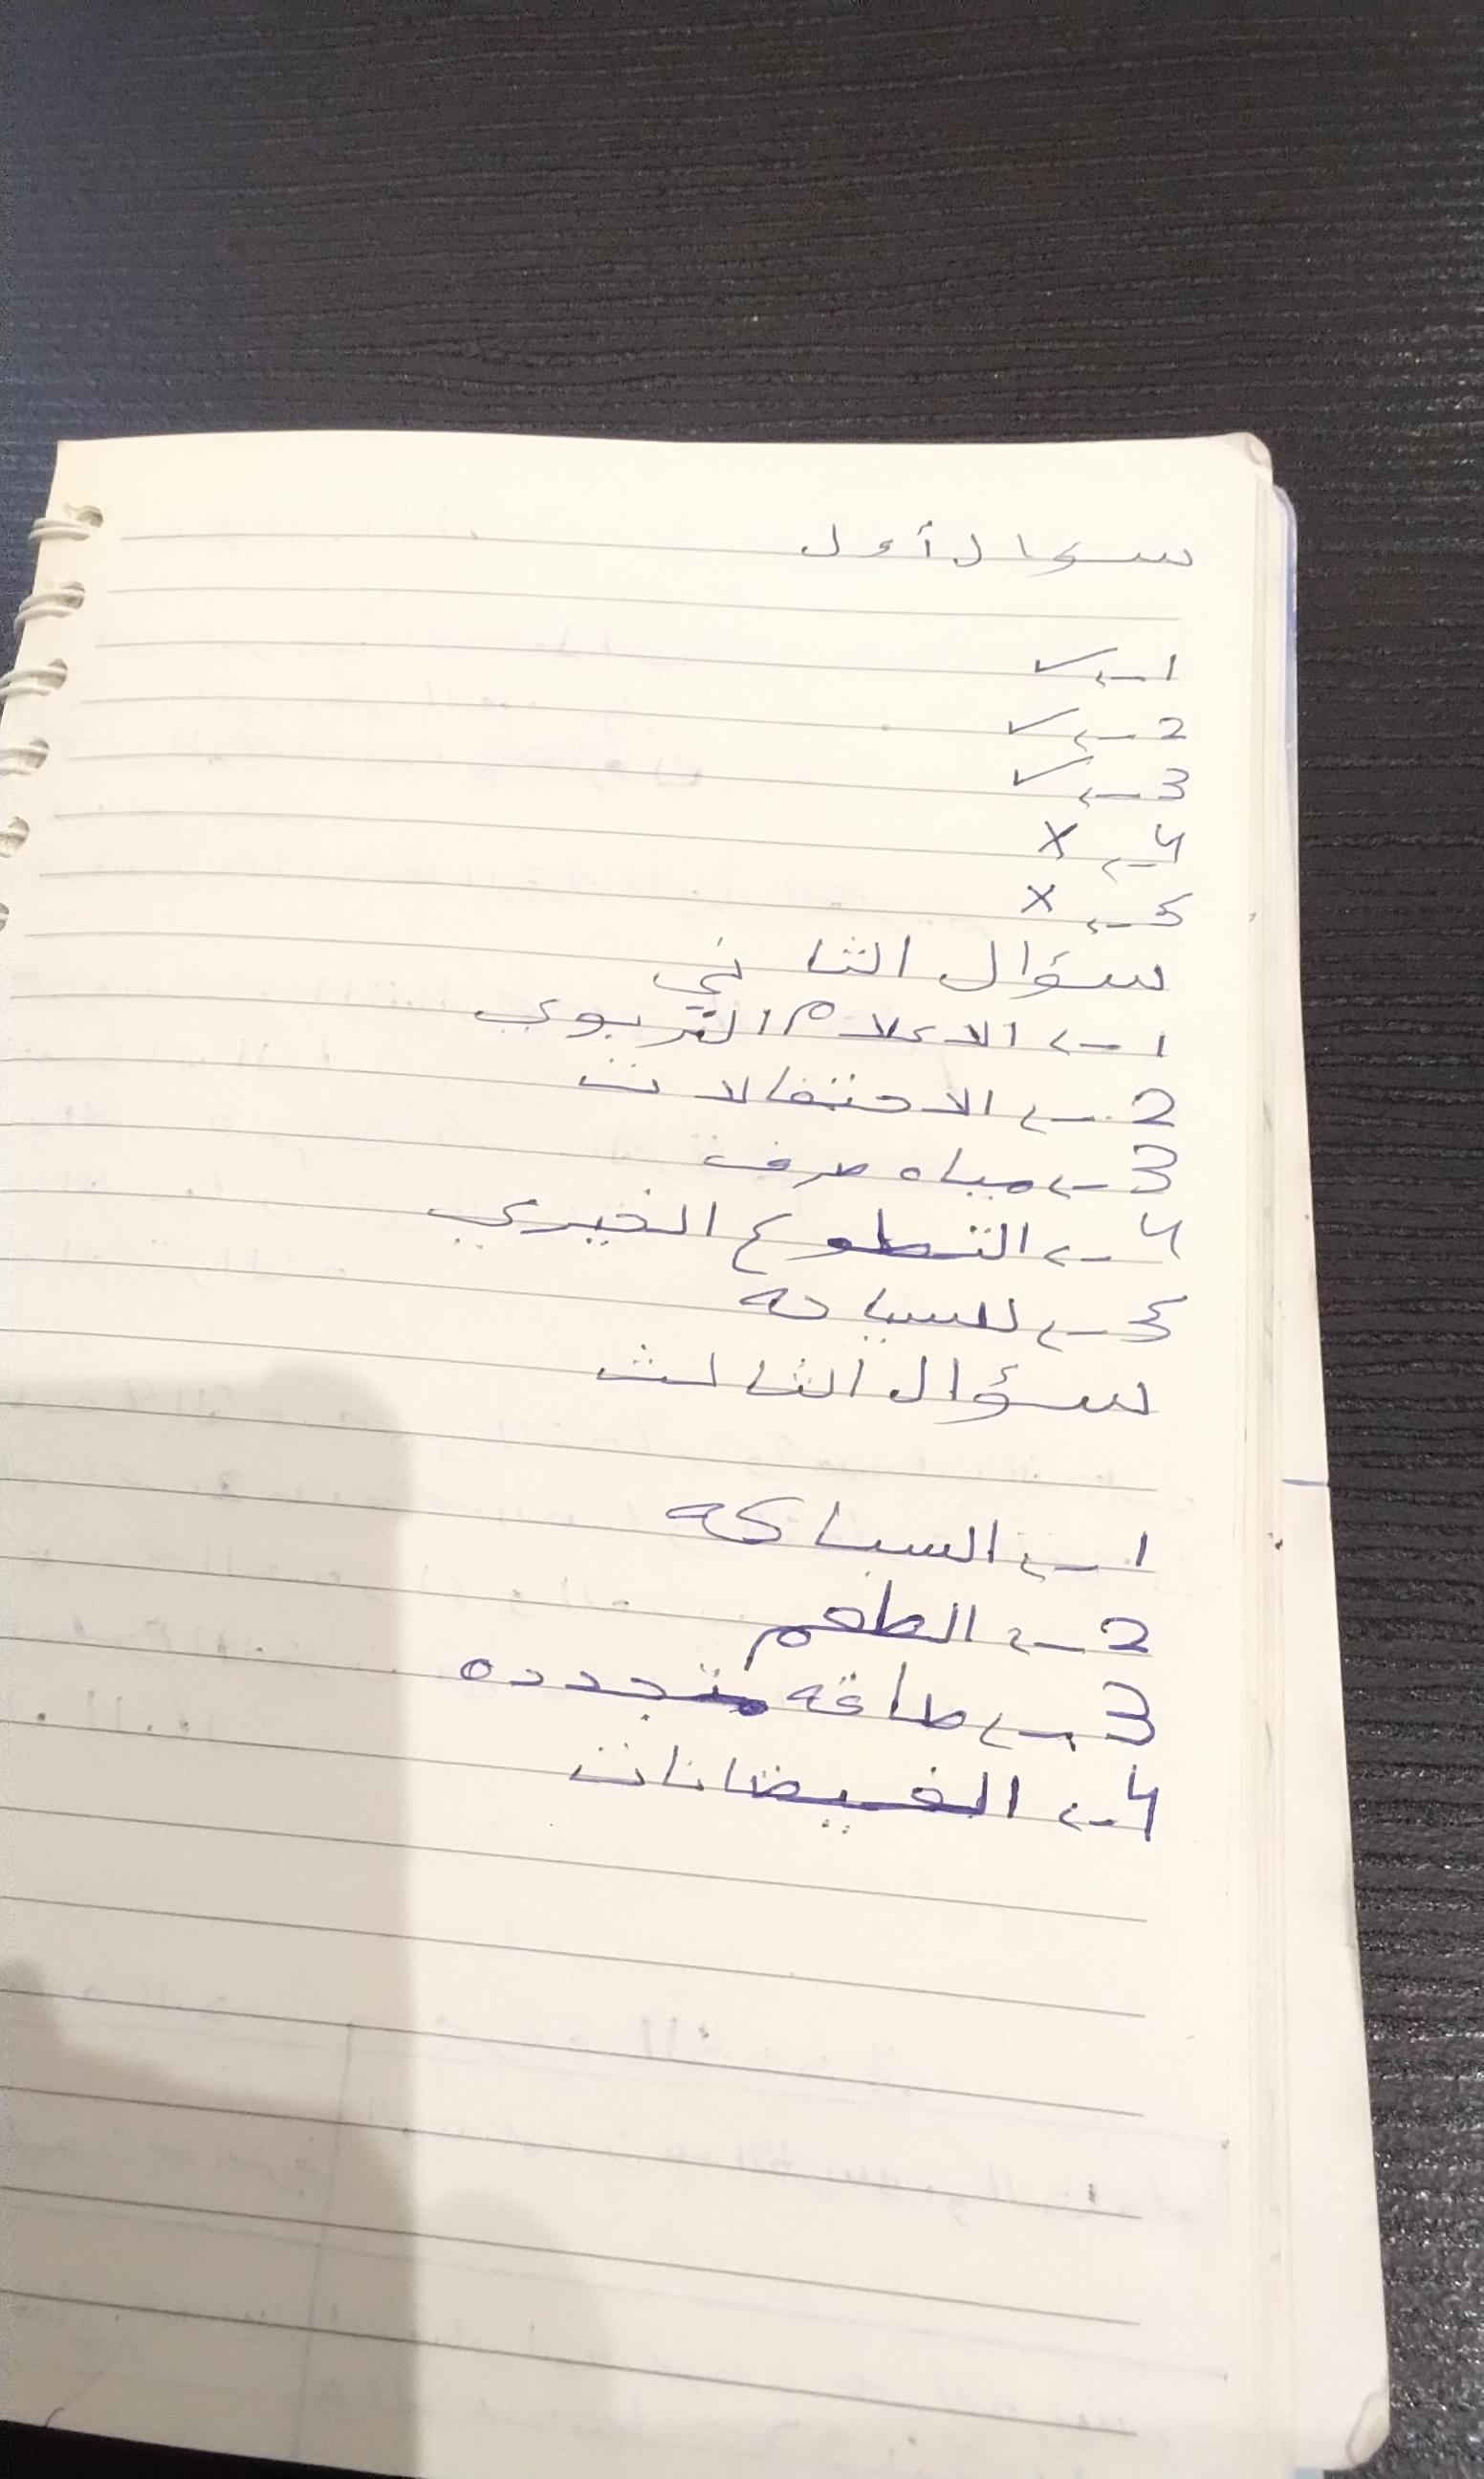 سؤال أول
1 ← ✓
2 ← ✓
3 ← ✓
4 ← ×
5 ← ×
سؤال الثاني
1 ← الاعلام التربوي
2 ← الاحتفالات
3 ← مياه صرف
4 ← التطوع الخيري
5 ← للسياحه
سؤال الثالث
1 ← السباكه
2 ← الطعم
3 ← طاقه متجدده
4 ← الفيضانات